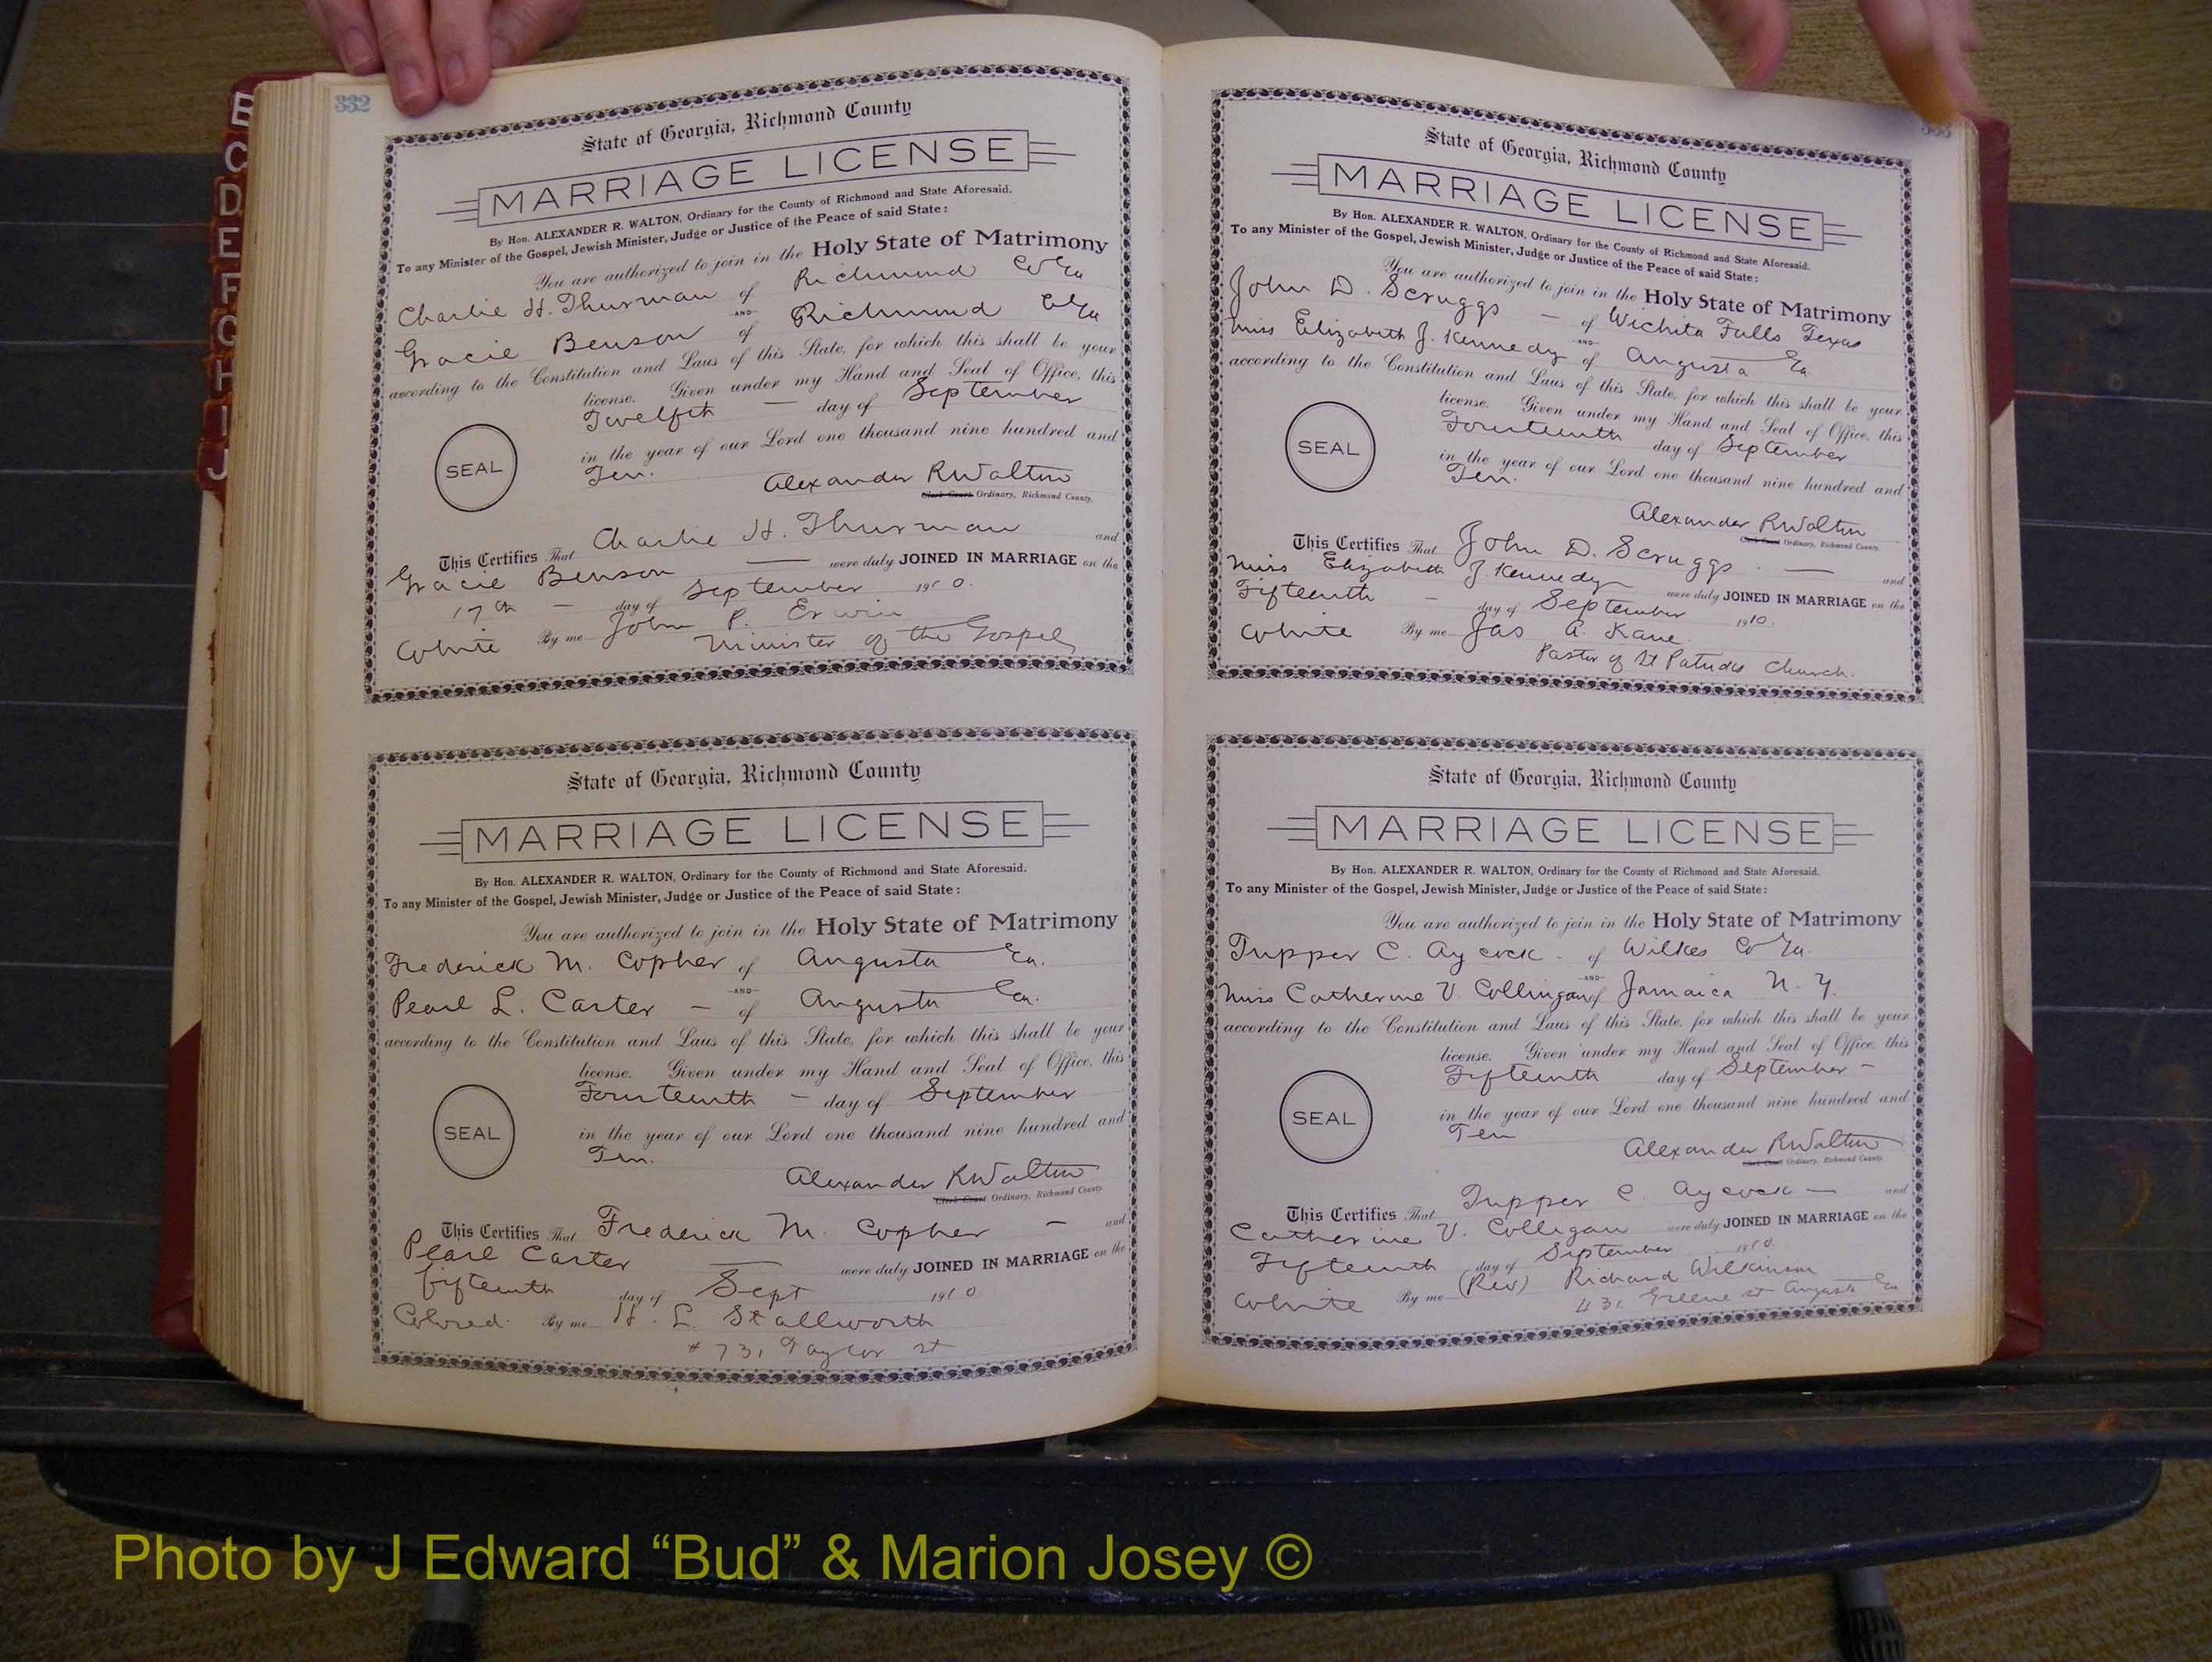 B
C
D
E
F
G
H
I
J
332
State of Georgia, Richmond County
MARRIAGE LICENSE
By Hon. ALEXANDER R. WALTON, Ordinary for the County of Richmond and State Aforesaid.
To any Minister of the Gospel, Jewish Minister, Judge or Justice of the Peace of said State:
You are authorized to join in the Holy State of Matrimony
Charlie H. Thurman of Richmond Co Ga
AND
Gracie Benson of Richmond Co Ga
according to the Constitution and Laws of this State, for which this shall be your
license. Given under my Hand and Seal of Office, this
Twelfth — day of September
in the year of our Lord one thousand nine hundred and
SEAL
Ten.
Alexander R Walton
Clerk Court Ordinary, Richmond County.
This Certifies That Charlie H. Thurman and
Gracie Benson — were duly JOINED IN MARRIAGE on the
17th — day of September 1910.
White By me John P. Erwin
Minister of the Gospel
State of Georgia, Richmond County
MARRIAGE LICENSE
By Hon. ALEXANDER R. WALTON, Ordinary for the County of Richmond and State Aforesaid.
To any Minister of the Gospel, Jewish Minister, Judge or Justice of the Peace of said State:
You are authorized to join in the Holy State of Matrimony
Frederick M. Copher of Augusta Ga.
AND
Pearl L. Carter — of Augusta Ga.
according to the Constitution and Laws of this State, for which this shall be your
license. Given under my Hand and Seal of Office, this
Fourteenth — day of September
SEAL
in the year of our Lord one thousand nine hundred and
Ten.
Alexander R Walton
Clerk Court Ordinary, Richmond County.
This Certifies That Frederick M. Copher — and
Pearl Carter — were duly JOINED IN MARRIAGE on the
fifteenth day of Sept 1910
Colored. By me H. L. Stallworth
# 731 Taylor st
333
State of Georgia, Richmond County
MARRIAGE LICENSE
By Hon. ALEXANDER R. WALTON, Ordinary for the County of Richmond and State Aforesaid.
To any Minister of the Gospel, Jewish Minister, Judge or Justice of the Peace of said State:
You are authorized to join in the Holy State of Matrimony
John D. Scruggs — of Wichita Falls Texas
AND
Miss Elizabeth J. Kennedy of Augusta Ga
according to the Constitution and Laws of this State, for which this shall be your
license. Given under my Hand and Seal of Office, this
Fourteenth day of September
SEAL
in the year of our Lord one thousand nine hundred and
Ten.
Alexander R Walton
Clerk Court Ordinary, Richmond County.
This Certifies That John D. Scruggs. — and
Miss Elizabeth J. Kennedy were duly JOINED IN MARRIAGE on the
Fifteenth — day of September 1910.
White By me Jas A. Kane.
Pastor of St Patricks Church.
State of Georgia, Richmond County
MARRIAGE LICENSE
By Hon. ALEXANDER R. WALTON, Ordinary for the County of Richmond and State Aforesaid.
To any Minister of the Gospel, Jewish Minister, Judge or Justice of the Peace of said State:
You are authorized to join in the Holy State of Matrimony
Tupper C. Aycock - of Wilkes Co Ga.
AND
Miss Catherine V. Collingan of Jamaica N. Y.
according to the Constitution and Laws of this State, for which this shall be your
license. Given under my Hand and Seal of Office, this
Fifteenth day of September -
SEAL
in the year of our Lord one thousand nine hundred and
Ten
Alexander R Walton
Clerk Court Ordinary, Richmond County.
This Certifies That Tupper C. Aycock — and
Catherine V. Colligan were duly JOINED IN MARRIAGE on the
Fifteenth day of September 1910.
White By me (Rev) Richard Wilkinson
431 Greene st Augusta Ga
Photo by J Edward “Bud” & Marion Josey ©